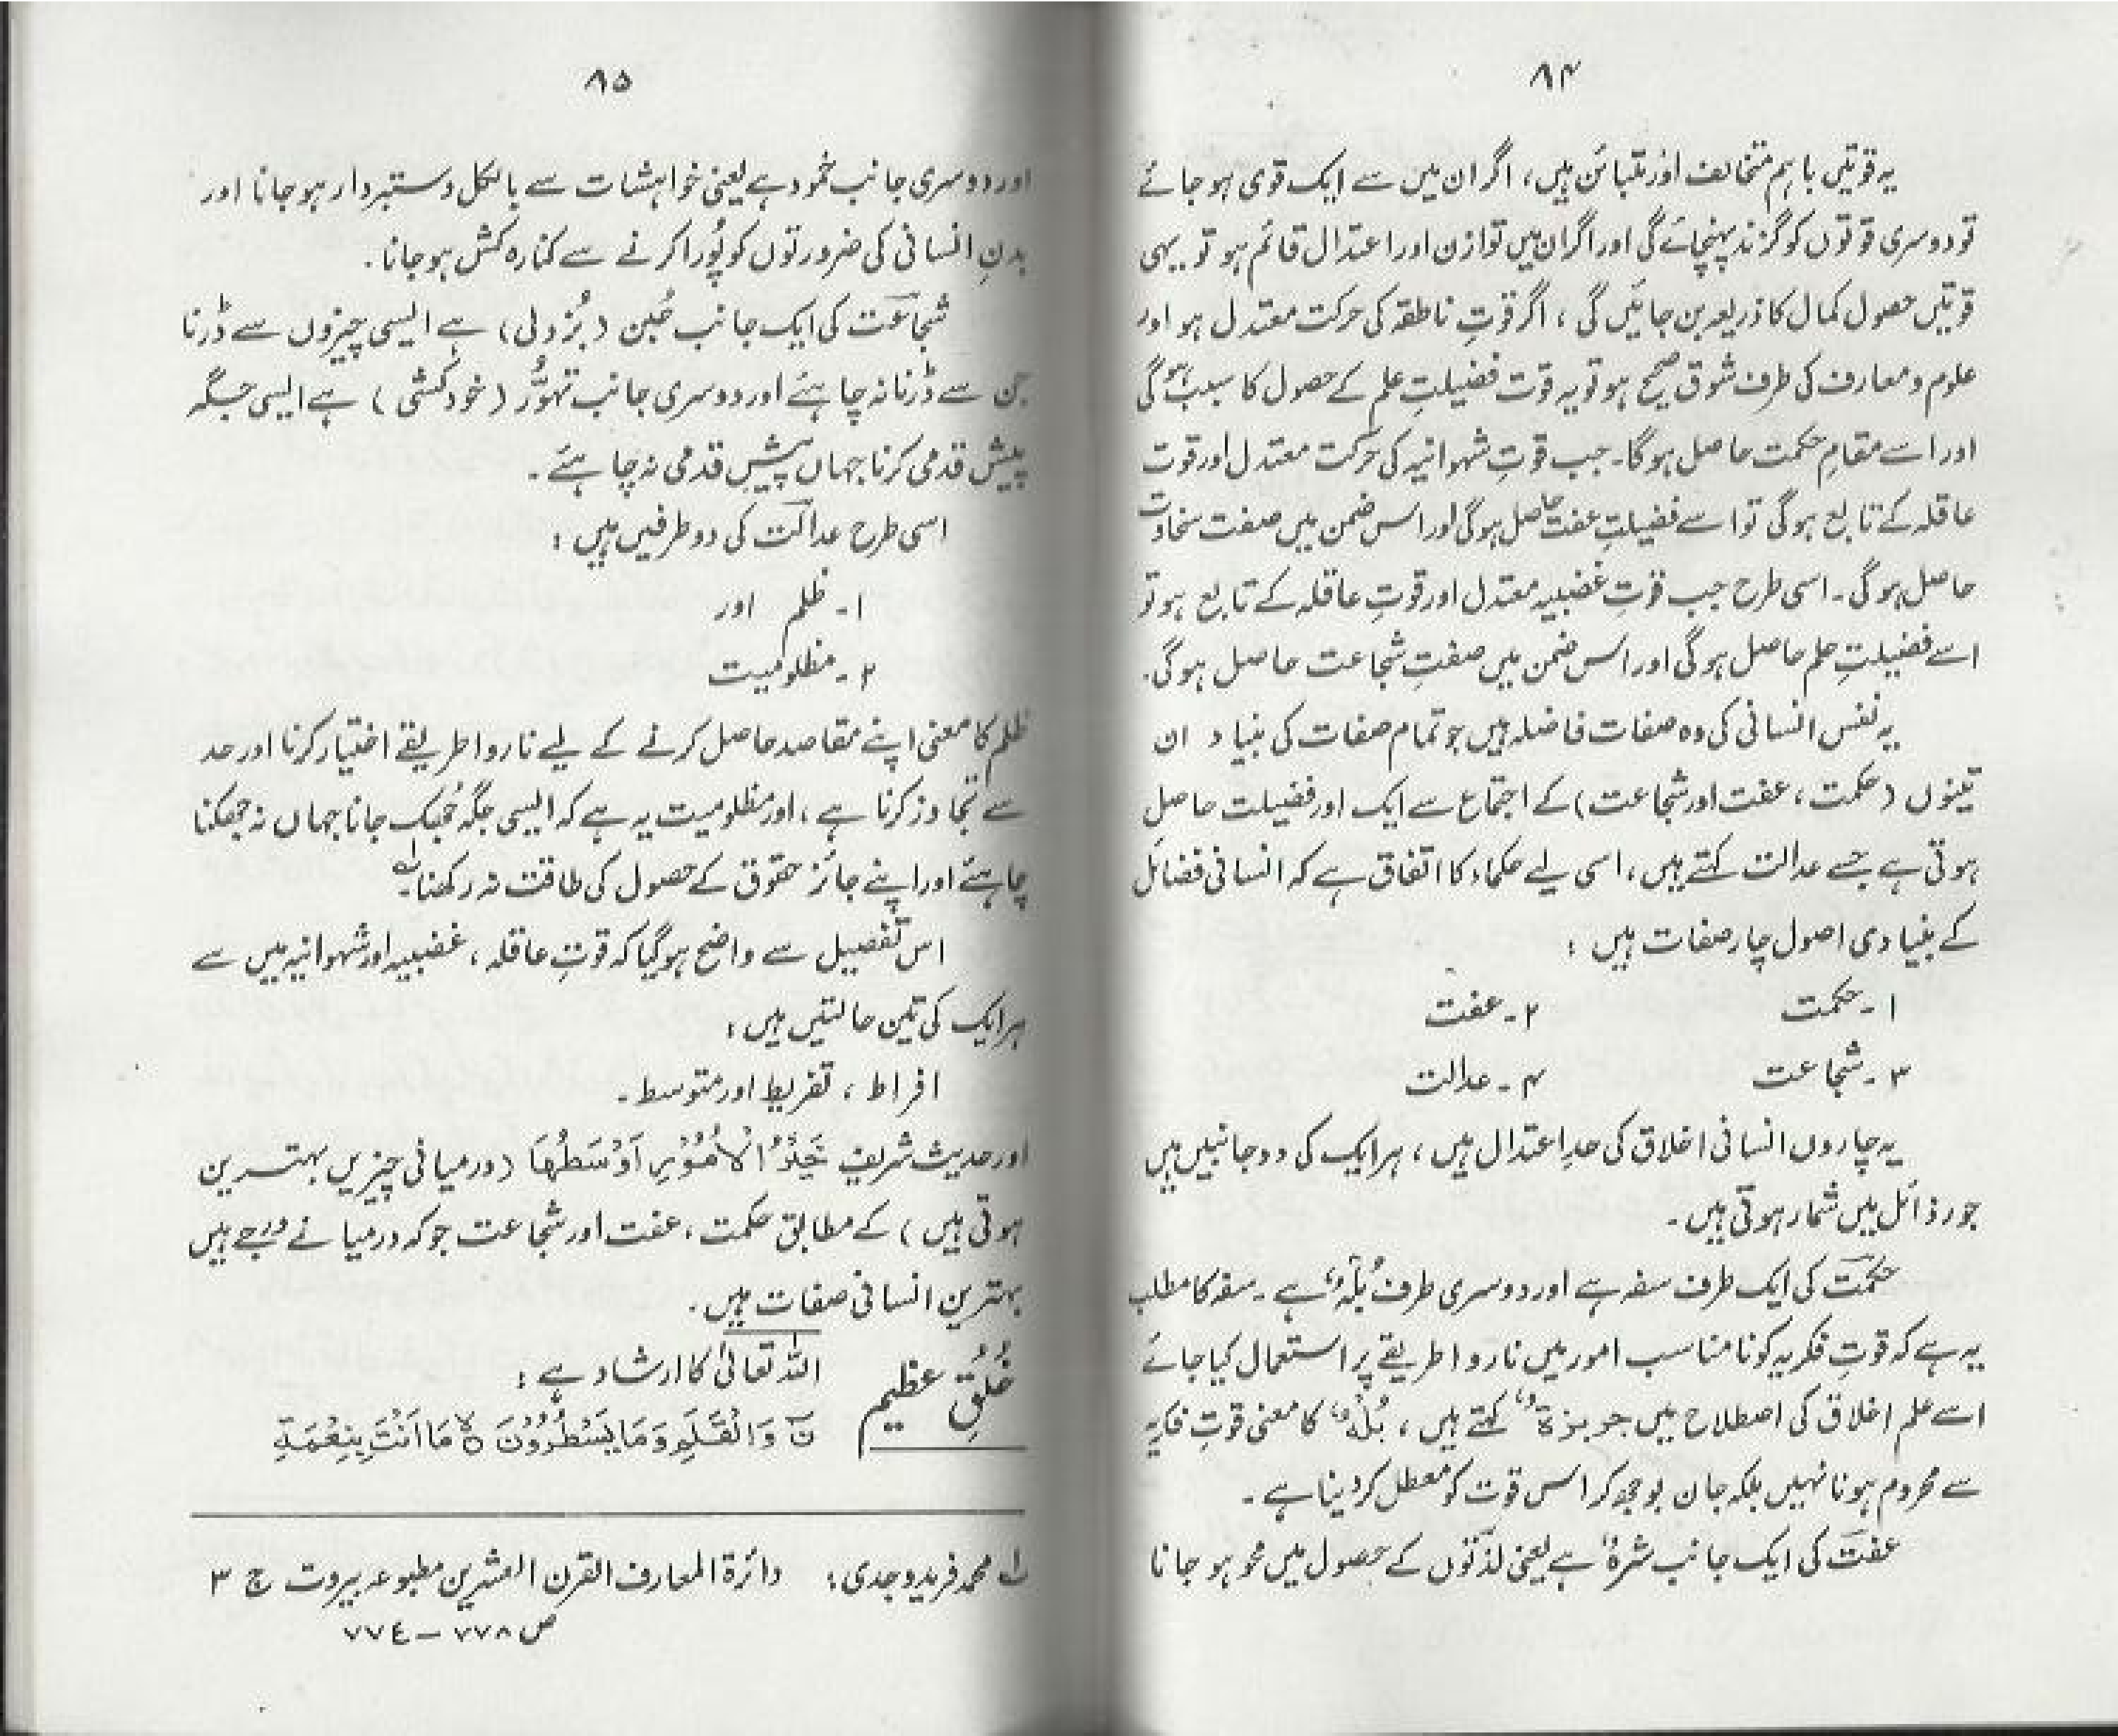 ۸۴
یہ قوتیں باہم متخالف اور متبائن ہیں، اگر ان میں سے ایک قوی ہو جائے
تو دوسری قوتوں کو گزند پہنچائے گی اور اگر ان میں توازن اور اعتدال قائم ہو تو یہی
قوتیں حصول کمال کا ذریعہ بن جائیں گی، اگر قوتِ ناطقہ کی حرکت معتدل ہو اور
علوم و معارف کی طرف شوق صحیح ہو تو یہ قوت فضیلتِ علم کے حصول کا سبب ہوگی
اور اسے مقامِ حکمت حاصل ہوگا۔ جب قوتِ شہوانیہ کی حرکت معتدل اور قوت
عاقلہ کے تابع ہوگی تو اسے فضیلتِ عفت حاصل ہوگی اور اس ضمن میں صفت سخاوت
حاصل ہوگی۔ اسی طرح جب قوتِ غضبیہ معتدل اور قوتِ عاقلہ کے تابع ہو تو
اسے فضیلتِ حلم حاصل ہوگی اور اس ضمن میں صفتِ شجاعت حاصل ہوگی۔
یہ نفس انسانی کی وہ صفات فاضلہ ہیں جو تمام صفات کی بنیاد ان
تینوں (حکمت، عفت اور شجاعت) کے اجتماع سے ایک اور فضیلت حاصل
ہوتی ہے جسے عدالت کہتے ہیں، اسی لیے حکماء کا اتفاق ہے کہ انسانی فضائل
کے بنیادی اصول چار صفات ہیں:
۱۔ حکمت ۲۔ عفت
۳۔ شجاعت ۴۔ عدالت
یہ چاروں انسانی اخلاق کی حدِ اعتدال ہیں، ہر ایک کی دو جانبیں ہیں
جو رذائل میں شمار ہوتی ہیں۔
حکمت کی ایک طرف سفہ ہے اور دوسری طرف بُلْہ ہے۔ سفہ کا مطلب
یہ ہے کہ قوتِ فکریہ کو نامناسب امور میں ناروا طریقے پر استعمال کیا جائے
اسے علم اخلاق کی اصطلاح میں جربزۃ کہتے ہیں، بُلْہ کا معنی قوتِ فکریہ
سے محروم ہونا نہیں بلکہ جان بوجھ کر اس قوت کو معطل کر دینا ہے۔
عفت کی ایک جانب شرہ ہے یعنی لذتوں کے حصول میں محو ہو جانا
۸۵
اور دوسری جانب خمود ہے یعنی خواہشات سے بالکل دستبردار ہو جانا اور
بدنِ انسانی کی ضرورتوں کو پُورا کرنے سے کنارہ کش ہو جانا۔
شجاعت کی ایک جانب جُبن (بُزدلی) ہے ایسی چیزوں سے ڈرنا
جن سے ڈرنا نہ چاہئے اور دوسری جانب تہوُّر (خودکشی) ہے ایسی جگہ
پیش قدمی کرنا جہاں پیش قدمی نہ چاہئے۔
اسی طرح عدالت کی دو طرفیں ہیں:
۱۔ ظلم اور
۲۔ مظلومیت
ظلم کا معنی اپنے مقاصد حاصل کرنے کے لیے ناروا طریقے اختیار کرنا اور حد
سے تجاوز کرنا ہے، اور مظلومیت یہ ہے کہ ایسی جگہ جُھک جانا جہاں نہ جھکنا
چاہئے اور اپنے جائز حقوق کے حصول کی طاقت نہ رکھنا۔ لہ
اس تفصیل سے واضح ہوگیا کہ قوتِ عاقلہ، غضبیہ اور شہوانیہ میں سے
ہر ایک کی تین حالتیں ہیں:
افراط، تفریط اور متوسط۔
اور حدیث شریف خَيْرُ الْأُمُوْرِ اَوْسَطُهَا (درمیانی چیزیں بہترین
ہوتی ہیں) کے مطابق حکمت، عفت اور شجاعت جو کہ درمیانے درجے ہیں
بہترین انسانی صفات ہیں۔
خُلُقِ عظیم
اللہ تعالیٰ کا ارشاد ہے:
نٓ وَالْقَلَمِ وَمَا يَسْطُرُوْنَ ۙ مَا اَنْتَ بِنِعْمَةِ
لہ محمد فرید وجدی: دائرۃ المعارف القرن العشرین مطبوعہ بیروت ج ۳
ص ۷۷۸ – ۷۷٤